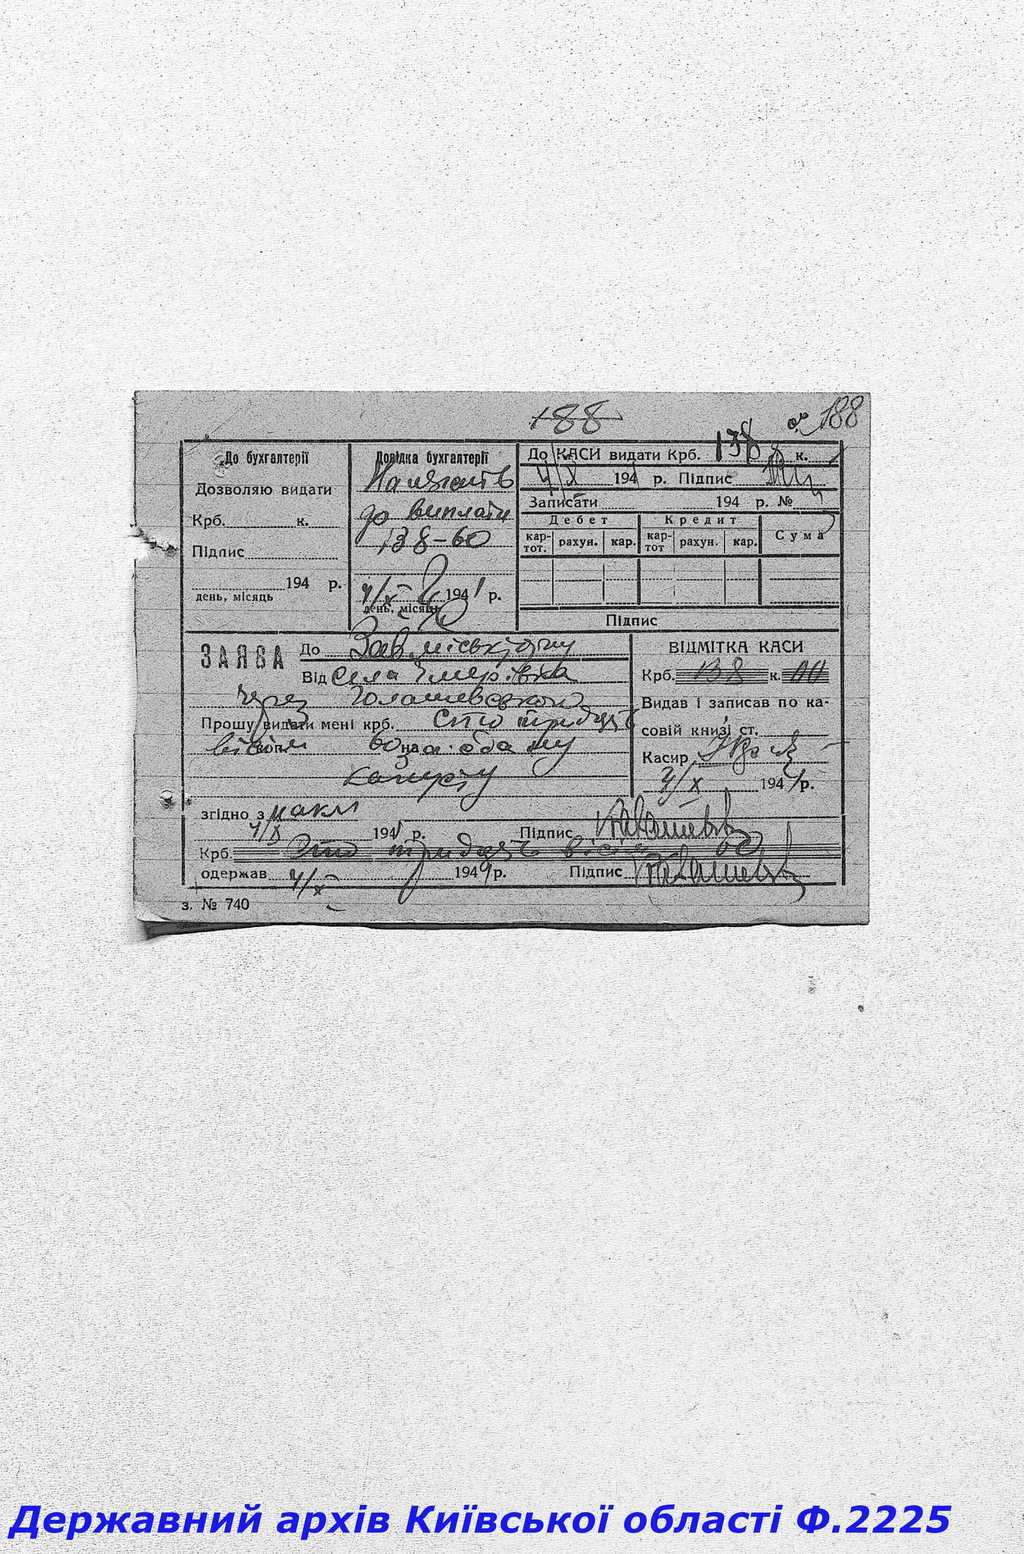 188
188
До бухгалтерії
Дозволяю видати
Крб. к.
Підпис
194 р.
день, місяць
Довідка бухгалтерії
Належить
до виплати
138-60
4/X 1941 р.
день, місяць
До КАСИ видати Крб. 138 к.
4/X 194 р. Підпис
Записати 194 р. №
Дебет Кредит Сума
кар-тот. рахун. кар. кар-тот рахун. кар.
Підпис
ЗАЯВА
До Зав міськ
Від села
через
Прошу видати мені крб. сто тридцять
вісім коп. 60 на
капусту
згідно з
4/X 1941 р. Підпис
Крб. Сто тридцять вісім 60
одержав 4/X 1941 р. Підпис
ВІДМІТКА КАСИ
Крб. 138 к. 60
Видав і записав по ка-
совій книзі ст.
Касир
4/X 1941 р.
з. № 740
Державний архів Київської області Ф.2225